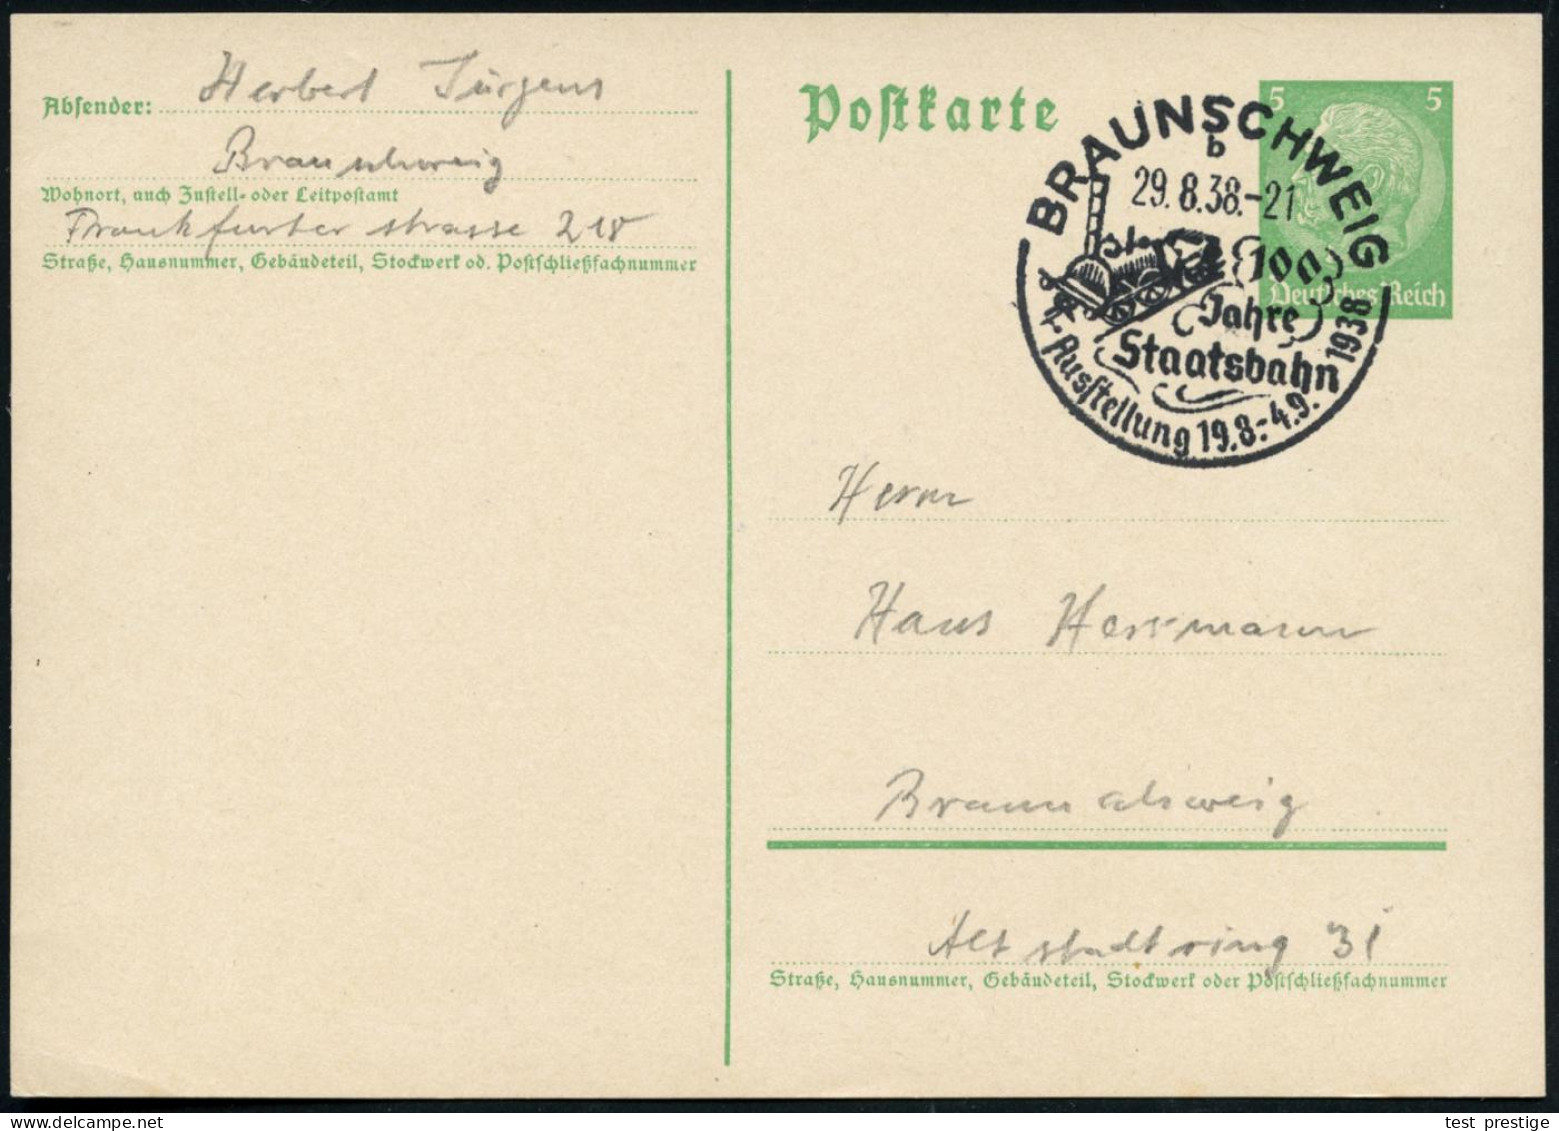 Absender: Herbert Jürgens
Braunschweig
Wohnort, auch Zustell- oder Leitpostamt
Frankfurter strasse 218
Straße, Hausnummer, Gebäudeteil, Stockwerk od. Postschließfachnummer
Postkarte
5 5
Deutsches Reich
BRAUNSCHWEIG
b
29.8.38.-21
100
Jahre
Staatsbahn
Ausstellung 19.8.-4.9. 1938
Herrn
Hans Herrmann
Braunschweig
Altstadtring 31
Straße, Hausnummer, Gebäudeteil, Stockwerk oder Postschließfachnummer
test prestige